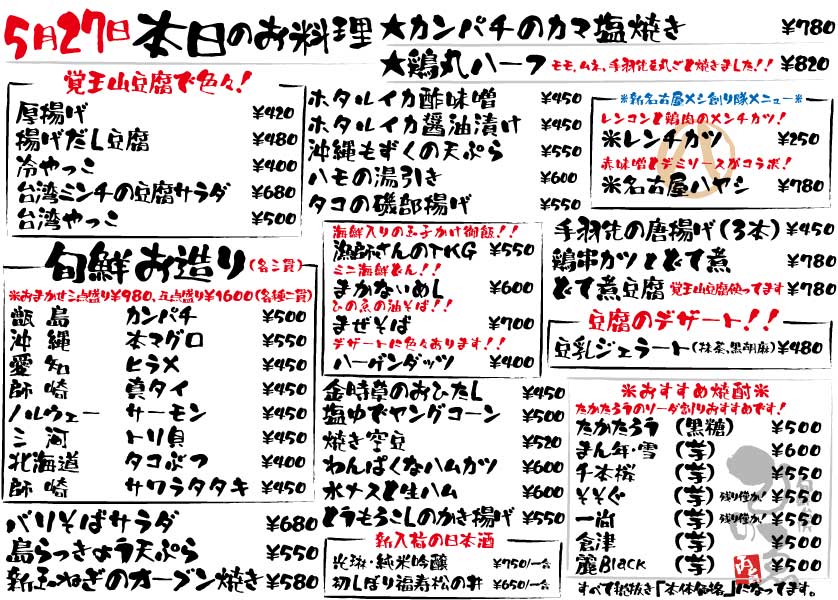 5月27日 本日のお料理
★カンパチのカマ塩焼き ¥780
★鶏丸ハーフ モモ、ムネ、手羽先を丸ごと焼きました!! ¥820
覚王山豆腐で色々!
厚揚げ ¥420
揚げだし豆腐 ¥480
冷やっこ ¥400
台湾ミンチの豆腐サラダ ¥680
台湾やっこ ¥500
旬鮮お造り(各二貫)
※おまかせ三点盛り¥980、五点盛り¥1600(各種二貫)
甑島 カンパチ ¥500
沖縄 本マグロ ¥550
愛知 ヒラメ ¥450
師崎 真タイ ¥450
ノルウェー サーモン ¥450
三河 トリ貝 ¥450
北海道 タコぶつ ¥400
師崎 サワラタタキ ¥450
バリそばサラダ ¥680
島らっきょう天ぷら ¥550
新玉ねぎのオーブン焼き ¥580
ホタルイカ酢味噌 ¥450
ホタルイカ醤油漬け ¥450
沖縄もずくの天ぷら ¥550
ハモの湯引き ¥600
タコの磯部揚げ ¥550
海鮮入りの玉子かけ御飯!!
漁師さんのTKG ¥550
ミニ海鮮どん!!
まかないめし ¥600
ひの兎の油そば!!
まぜそば ¥700
デザートに色々あります!!
ハーゲンダッツ ¥400
金時草のおひたし ¥450
塩ゆでヤングコーン ¥500
焼き空豆 ¥520
わんぱくなハムカツ ¥600
水ナスと生ハム ¥600
とうもろこしのかき揚げ ¥550
新入荷の日本酒
光琳・純米吟醸 ¥750/一合
初しぼり福寿松の井 ¥650/一合
※新名古屋メシ創り隊メニュー※
レンコンと鶏肉のメンチカツ!
※レンチカツ ¥250
赤味噌とデミソースがコラボ!
※名古屋ハヤシ ¥780
手羽先の唐揚げ(3本) ¥450
鶏串カツとどて煮 ¥780
どて煮豆腐 覚王山豆腐使ってます ¥780
豆腐のデザート!!
豆乳ジェラート(抹茶、黒胡麻) ¥480
※おすすめ焼酎※
たかたろうのソーダ割りおすすめです!
たかたろう (黒糖) ¥500
まん年・雪 (芋) ¥600
千本桜 (芋) ¥550
そそぐ (芋) 残り僅か! ¥550
一尚 (芋) 残り僅か! ¥550
倉津 (芋) ¥500
麗Black (芋) ¥500
すべて税抜き「本体価格」になってます。